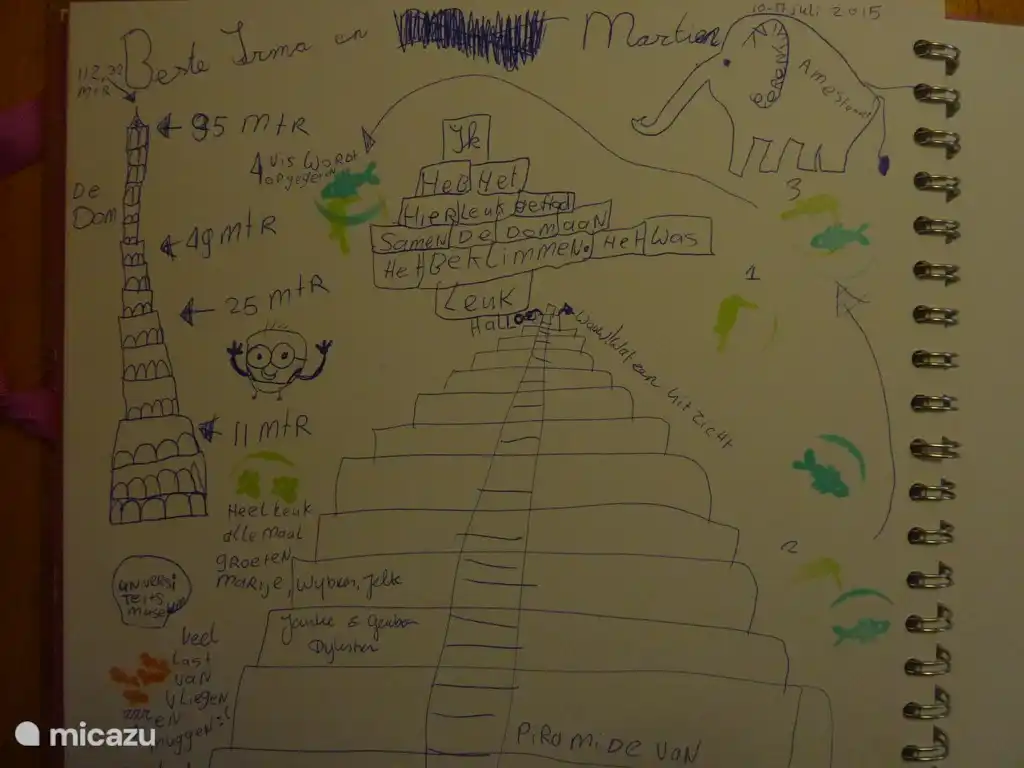 10-17 juli 2015
Beste Irma en Martien
112,32
mtR
95 mtR
De
Dom
49 mtR
25 mtR
11 mtR
4 vis wordt
opgegeten
Ik
HeB Het
HieR Leuk gehad
Samen De Dom aan
Het BeKlimmen. Het was
Leuk
Hallo
wow wat een uitzicht
Amersfoort
3
1
2
Heel Leuk
alle maal
groeten
Marije, Wybren, Jelle
Janke & Gerben
Dijkstra
universi
teits
museum
veel
Last
van
vliegen
zzz en
muggen =(
PiRamide van
micazu